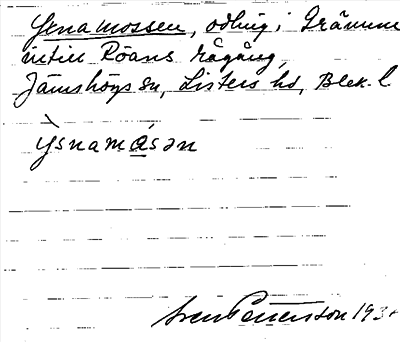 Ysnamossen, odling i Grännum
intill Röans rågång,
Jämshögs sn, Listers hd, Blek. l
ỳsnamásən
Sven Petersson 193